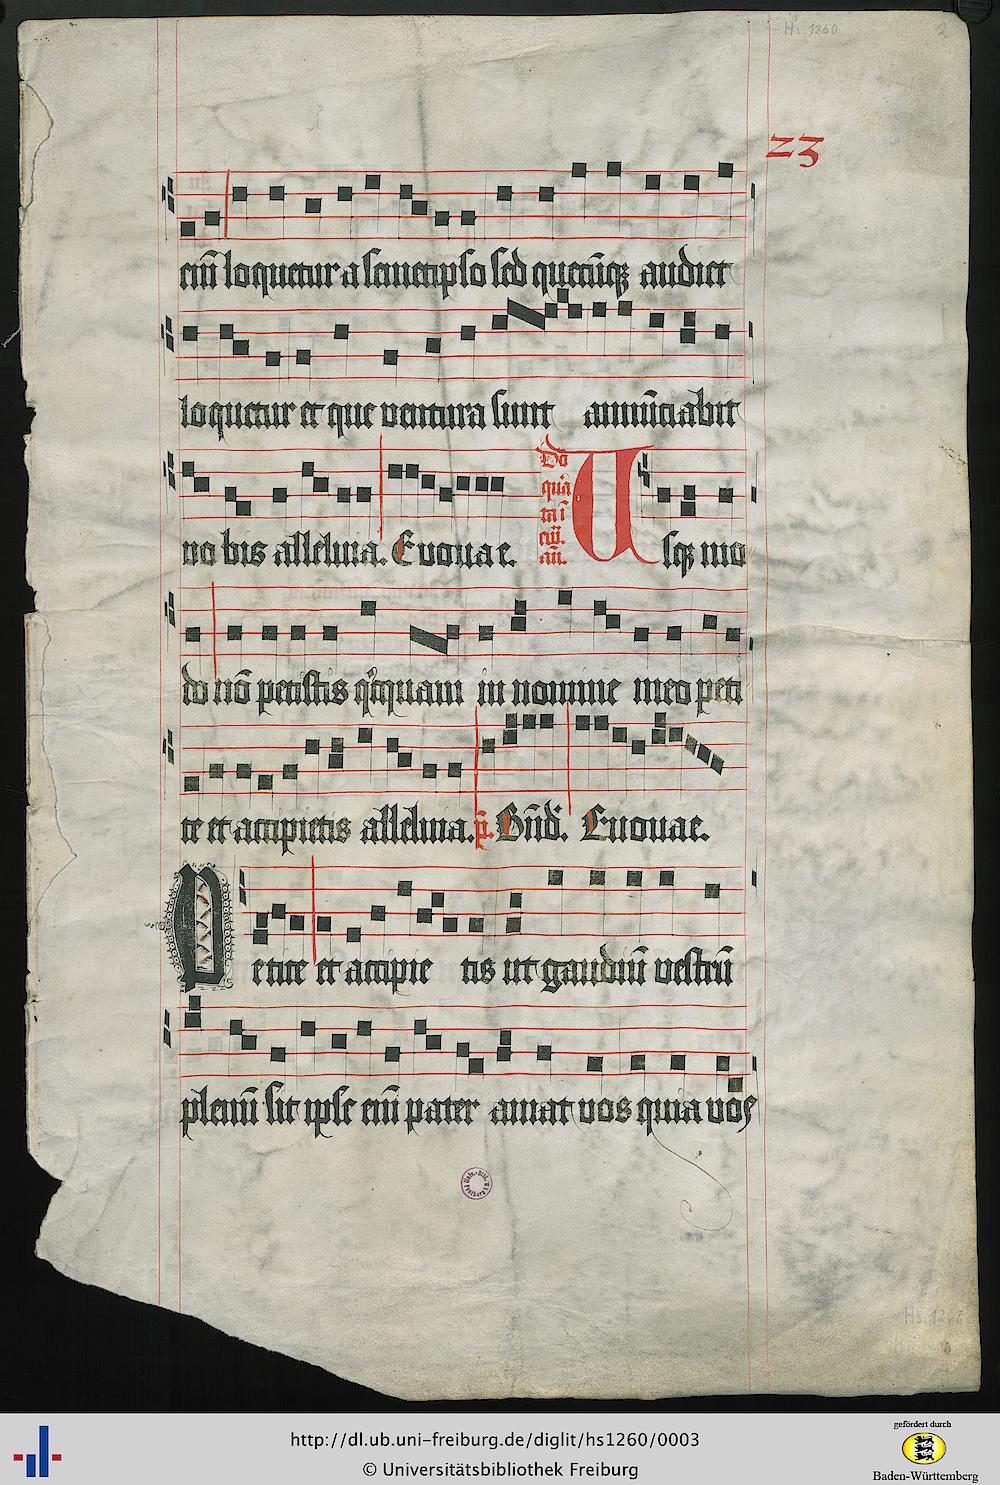 Hs. 1260
2
23
eiṁ loquetur a semetipso sed quecūqꝫ audiet
loquetur et que ventura sunt annūciabit
vobis alleluia. Euouae.
Do
Usqꝫ mo
do nō petistis qͥcquam in nomine meo peti
te et accipietis alleluia. p̄. Bn̄d. Euouae.
Petite et accipie tis ut gaudiū vestrū
plenū sit ipse eīm pater amat vos quia vos
http://dl.ub.uni-freiburg.de/diglit/hs1260/0003
© Universitätsbibliothek Freiburg
gefördert durch
Baden-Württemberg